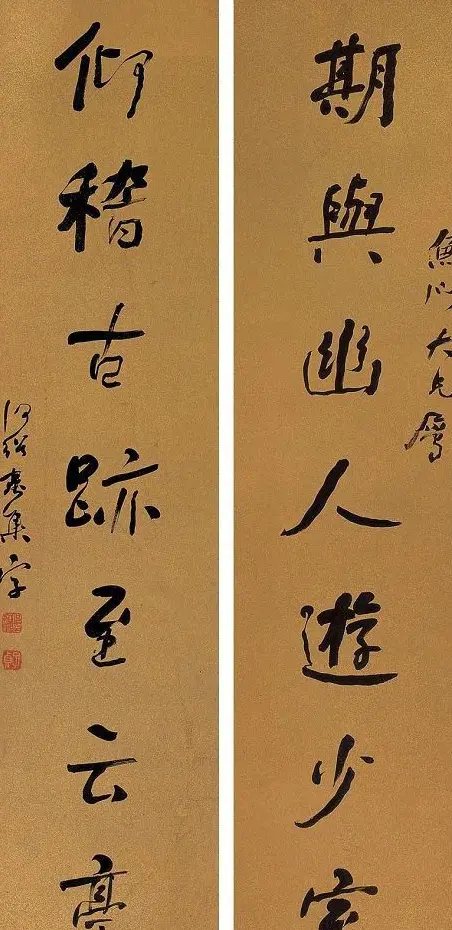 魚門大兄屬
期與幽人遊少室
仰稽古跡至云亭
何紹基集字